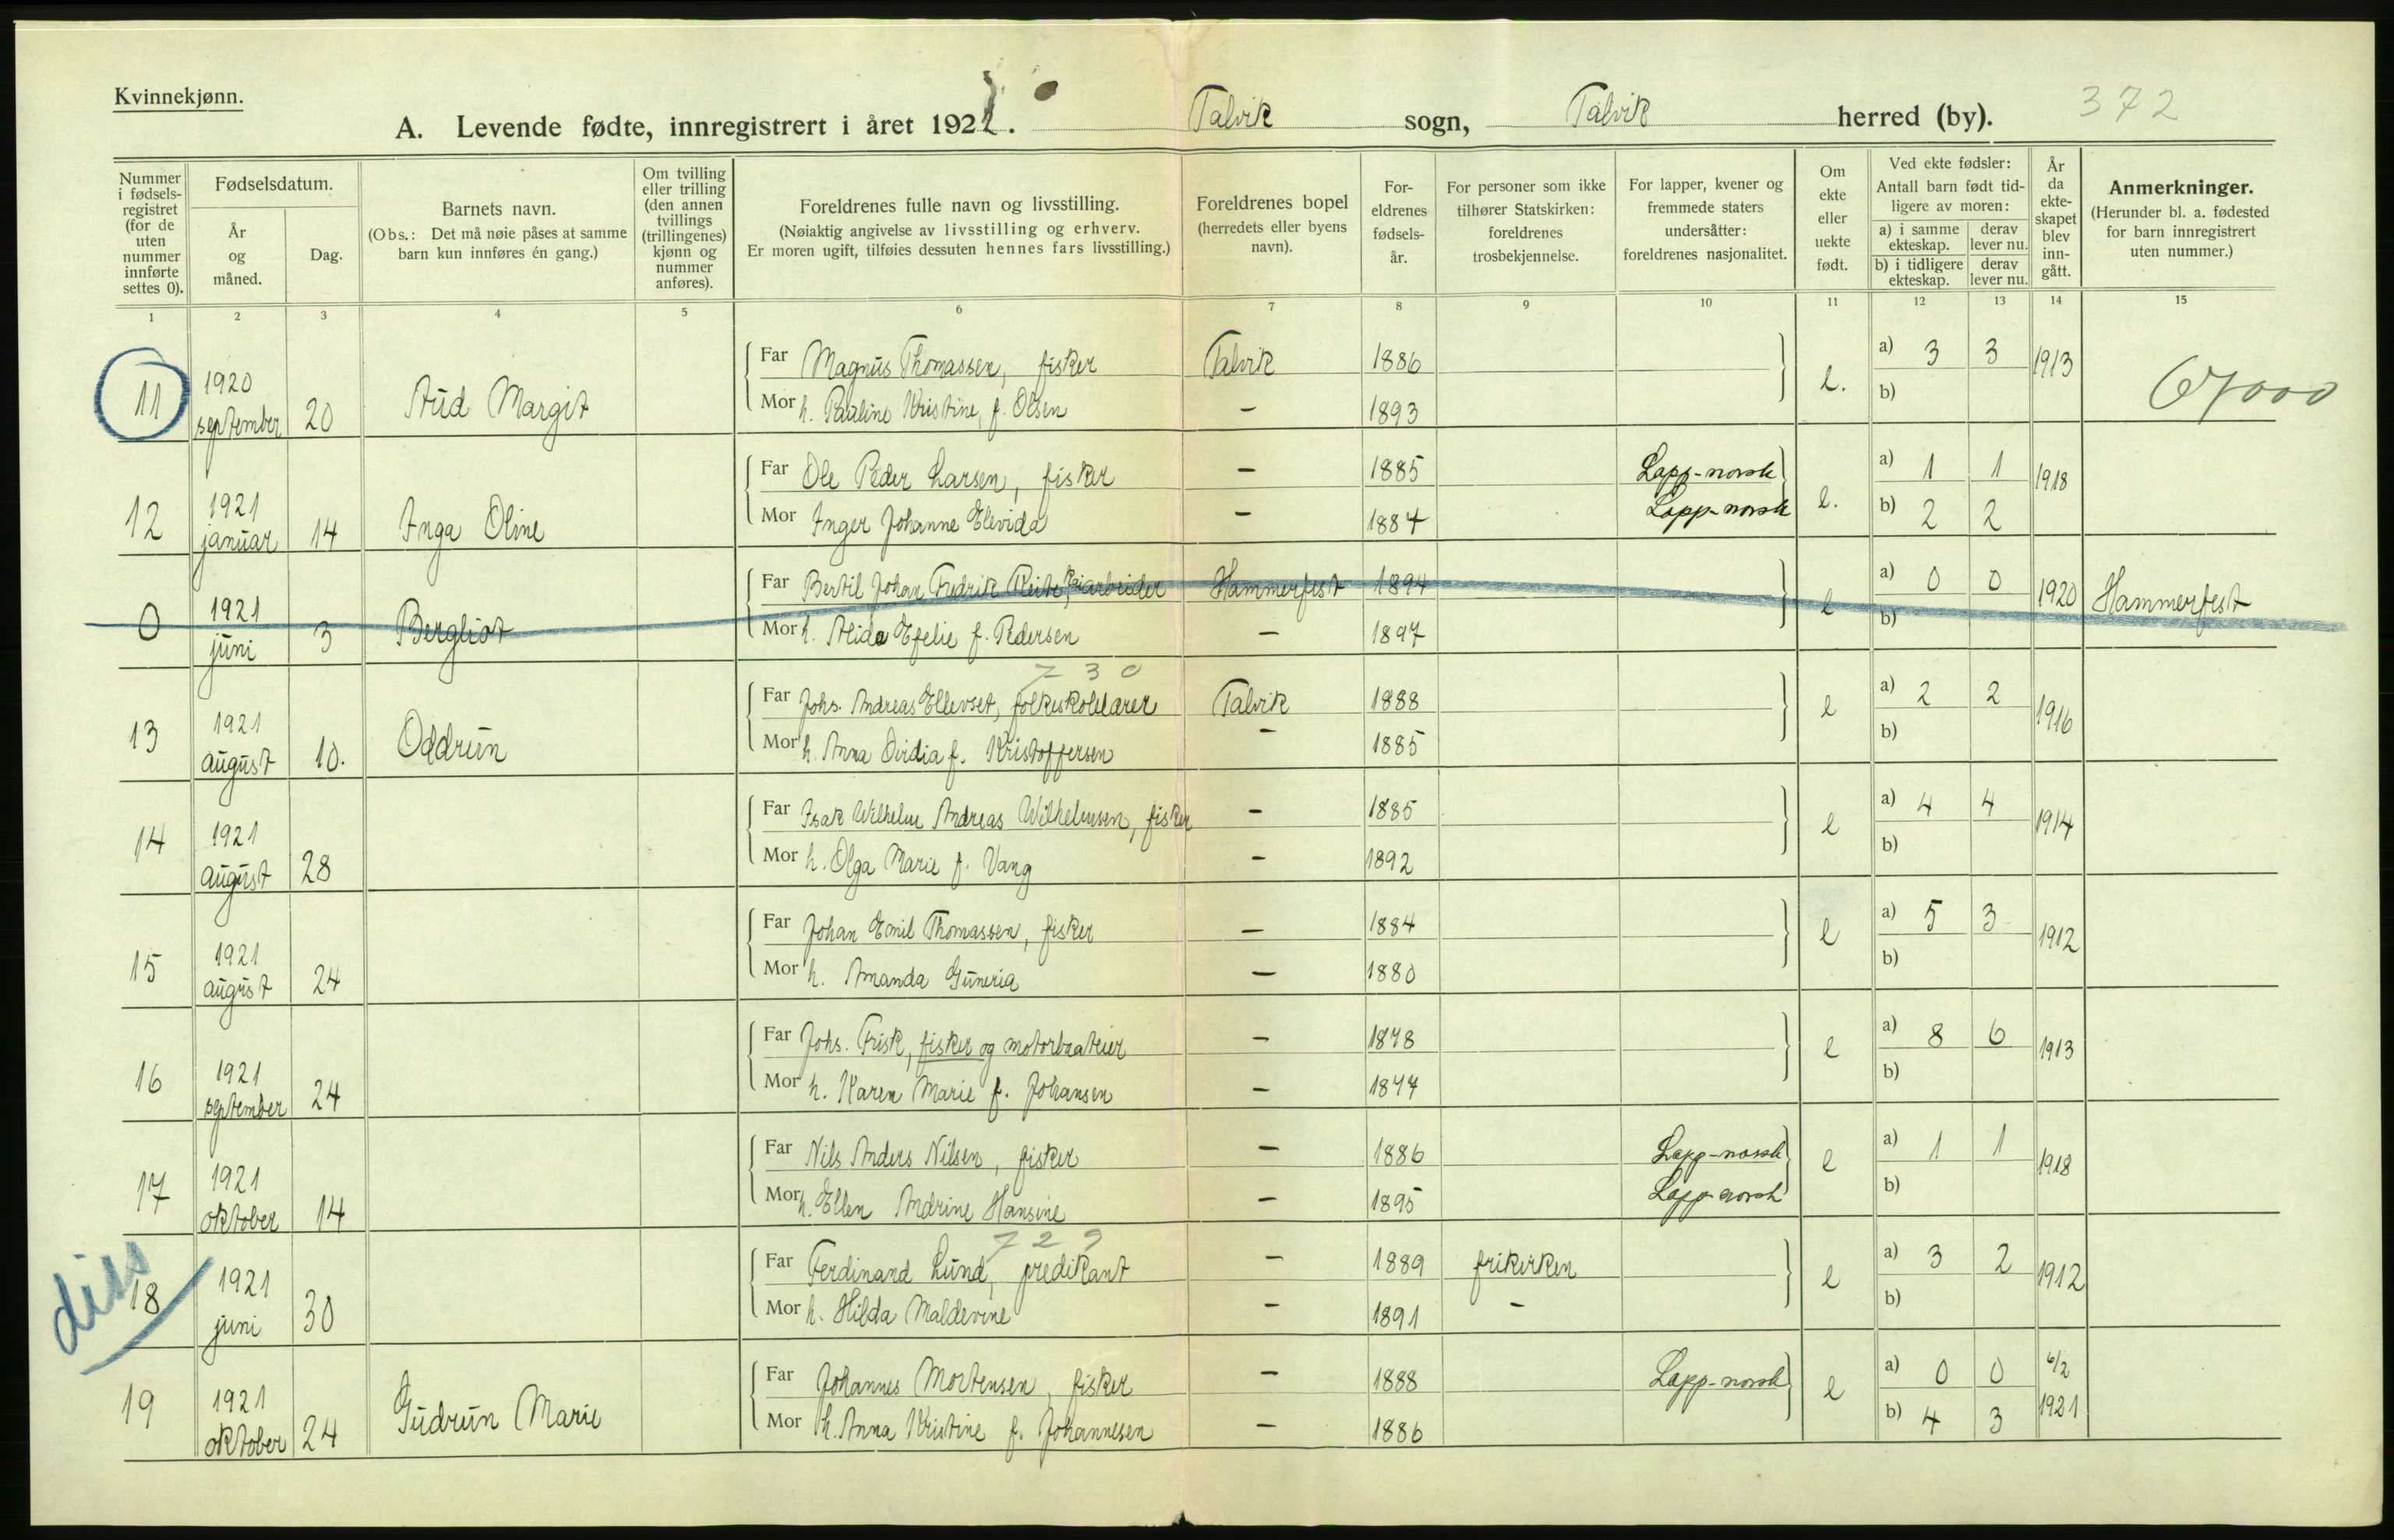 Kvinnekjønn.
A. Levende fødte, innregistrert i året 1921. Talvik sogn, Talvik herred (by). 372
Nummer i fødselsregistret (for de uten nummer innførte settes 0).
Fødselsdatum.
År og måned.
Dag.
Barnets navn.
(Obs.: Det må nøie påses at samme barn kun innføres én gang.)
Om tvilling eller trilling (den annen tvillings (trillingenes) kjønn og nummer anføres).
Foreldrenes fulle navn og livsstilling.
(Nøiaktig angivelse av livsstilling og erhverv.
Er moren ugift, tilføies dessuten hennes fars livsstilling.)
Foreldrenes bopel (herredets eller byens navn).
Foreldrenes fødselsår.
For personer som ikke tilhører Statskirken: foreldrenes trosbekjennelse.
For lapper, kvener og fremmede staters undersåtter: foreldrenes nasjonalitet.
Om ekte eller uekte født.
Ved ekte fødsler:
Antall barn født tidligere av moren:
a) i samme ekteskap. derav lever nu.
b) i tidligere ekteskap. derav lever nu.
År da ekteskapet blev inngått.
Anmerkninger.
(Herunder bl. a. fødested for barn innregistrert uten nummer.)
1 2 3 4 5 6 7 8 9 10 11 12 13 14 15
11 1920 september 20 Aud Margit
Far Magnus Thomassen, fisker Talvik 1886 e. a) 3 3 1913
Mor h. Pauline Kristine, f. Olsen – 1893 b)
12 1921 januar 14 Inga Oline
Far Ole Peder Larsen, fisker – 1885 Lapp-norsk e. a) 1 1 1918
Mor Inger Johanne Elevida – 1887 Lapp-norsk b) 2 2
0 1921 juni 3 Bergliot
Far Bertil Johan Fredrik Kaiarbeider Hammerfest 1894 e a) 0 0 1920 Hammerfest
Mor h. Alida Efelie f. Pedersen – 1897 b)
730
13 1921 august 10. Oddrun
Far Johs. Andreas Ellevset, folkeskolelærer Talvik 1888 e a) 2 2 1916
Mor h. Anna Ovidia f. Kristoffersen – 1885 b)
14 1921 august 28
Far Isak Wilhelm Andreas Wilhelmsen, fisker – 1885 e a) 4 4 1914
Mor h. Olga Marie f. Vang – 1892 b)
15 1921 august 24
Far Johan Emil Thomassen, fisker – 1884 e a) 5 3 1912
Mor h. Amanda Guneria – 1880 b)
16 1921 september 24
Far Johs. Frisk, fisker og motorbaateier – 1878 e a) 8 6 1913
Mor h. Karen Marie f. Johansen – 1877 b)
17 1921 oktober 14
Far Nils Anders Nilsen, fisker – 1886 Lapp-norsk e a) 1 1 1918
Mor h. Ellen Andrine Hansine – 1895 Lapp-norsk b)
729
diss
18 1921 juni 30
Far Ferdinand Lund, predikant – 1889 frikirken e a) 3 2 1912
Mor h. Hilda Maldevine – 1891 – b)
19 1921 oktober 24 Gudrun Marie
Far Johannes Mortensen, fisker – 1888 Lapp-norsk e a) 0 0 6/2 1921
Mor h. Anna Kristine f. Johannesen – 1886 b) 4 3